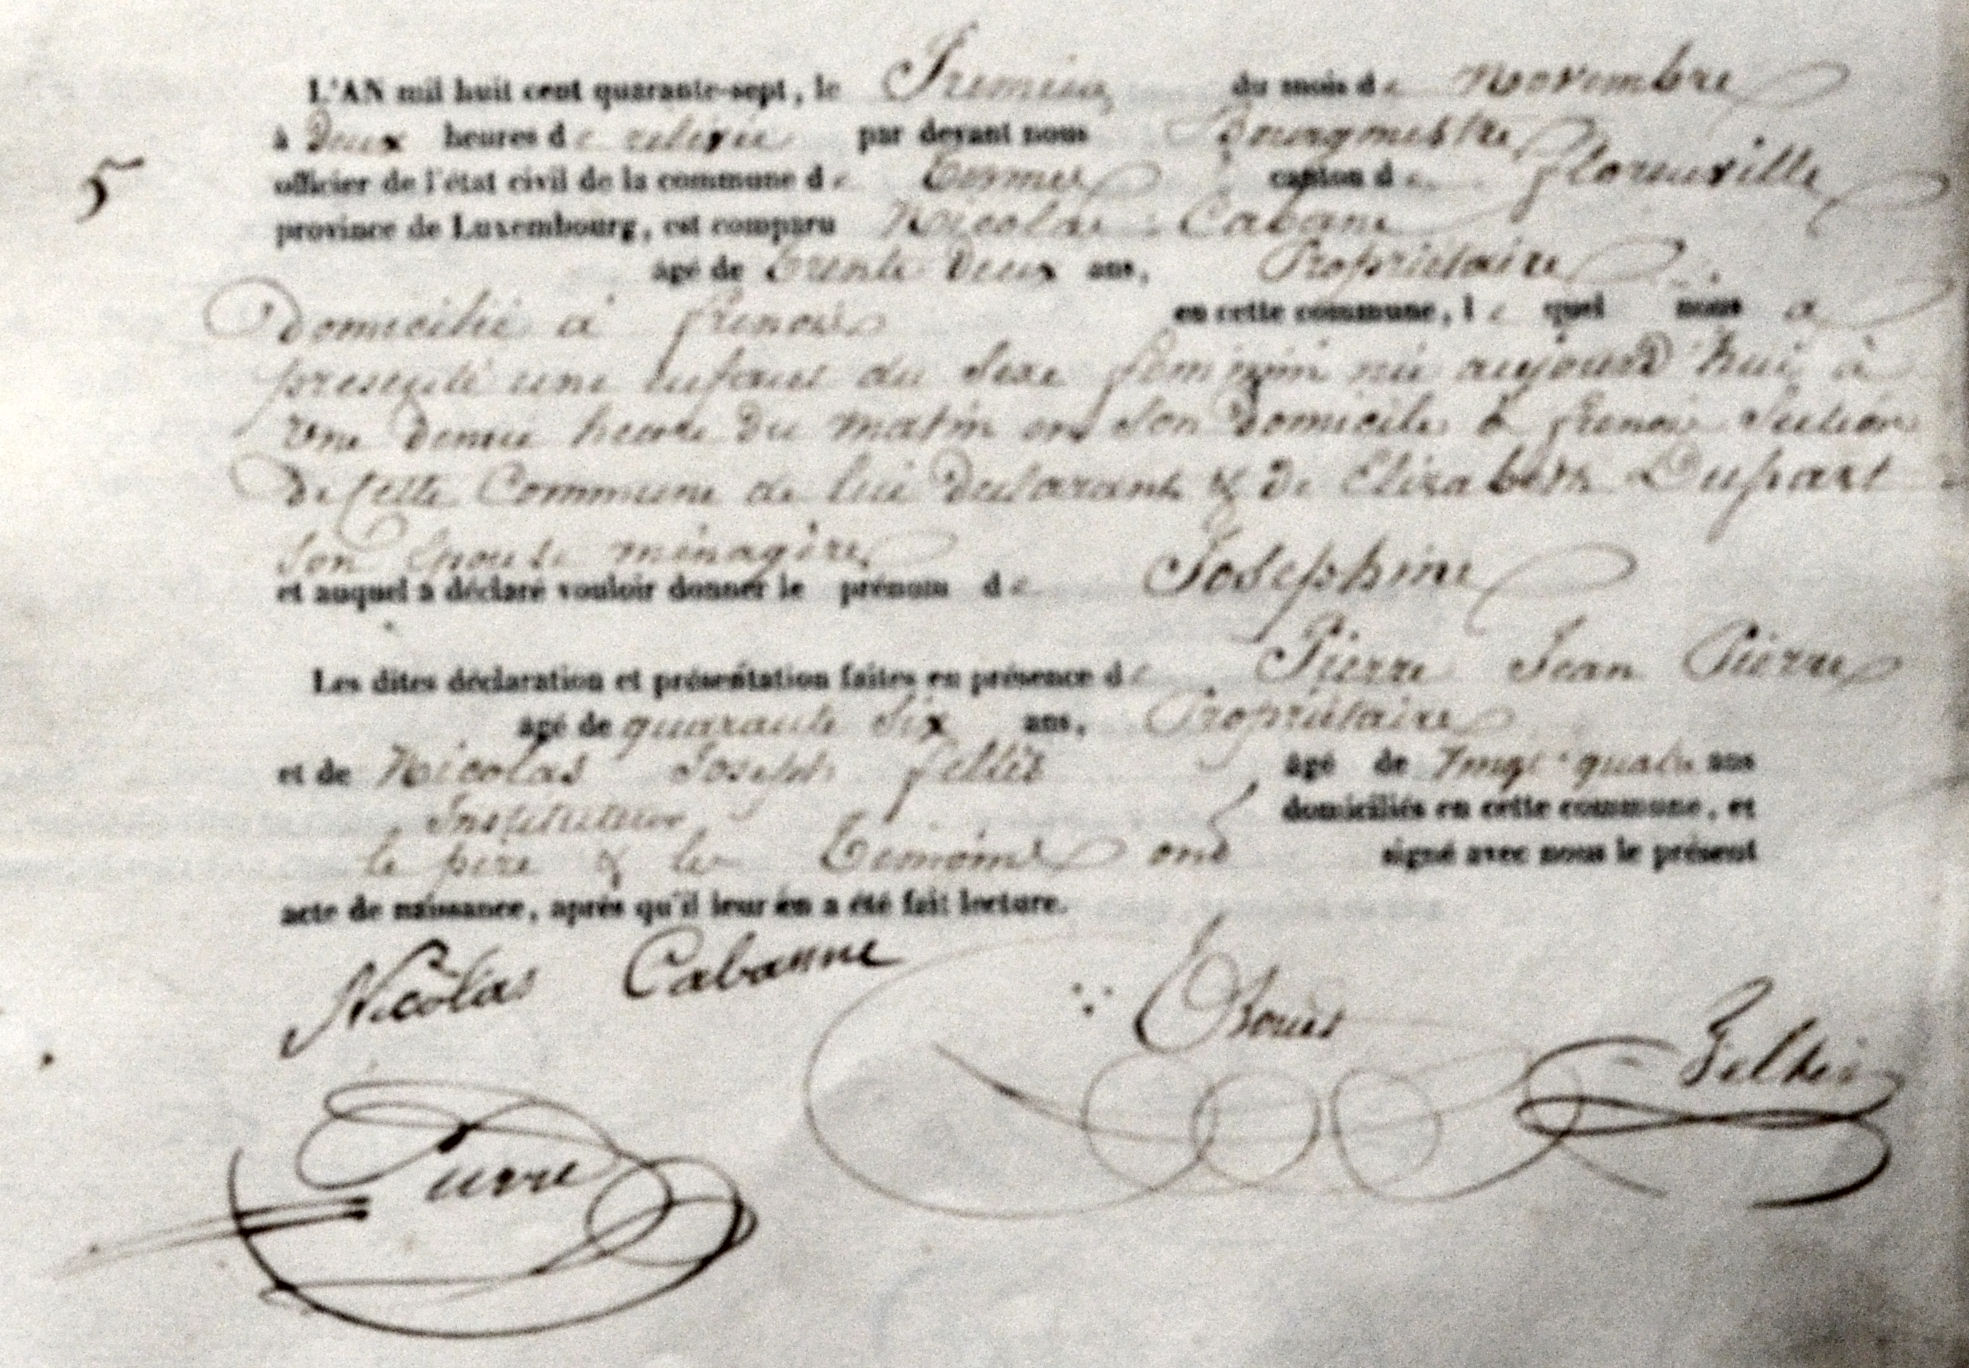 L'AN mil huit cent quarante-sept, le Premier du mois de novembre
à Deux heures de relevée par devant nous Bourgmestre
5
officier de l'état civil de la commune de Termes canton de florenville
province de Luxembourg, est comparu Nicolas Cabane
âgé de trente Deux ans, Propriétaire
Domicilié à frenois en cette commune, le quel nous a
presenté une enfant du Sexe feminin née aujourd'hui à
une demie heure du matin en Son Domicile à frenois Section
De Cette Commune de lui declarant & de Elizabeth Dupart
Son épouse ménagère
et auquel a déclaré vouloir donner le prénom de Josephine
Les dites déclaration et présentation faites en présence de Pierre Jean Pierre
âgé de quarante Six ans, Propriétaire
et de Nicolas Joseph âgé de vingt quatre ans
Instituteur domiciliés en cette commune, et
le père & les Témoins ont signé avec nous le présent
acte de naissance, après qu'il leur en a été fait lecture.
Nicolas Cabanne
Pierre